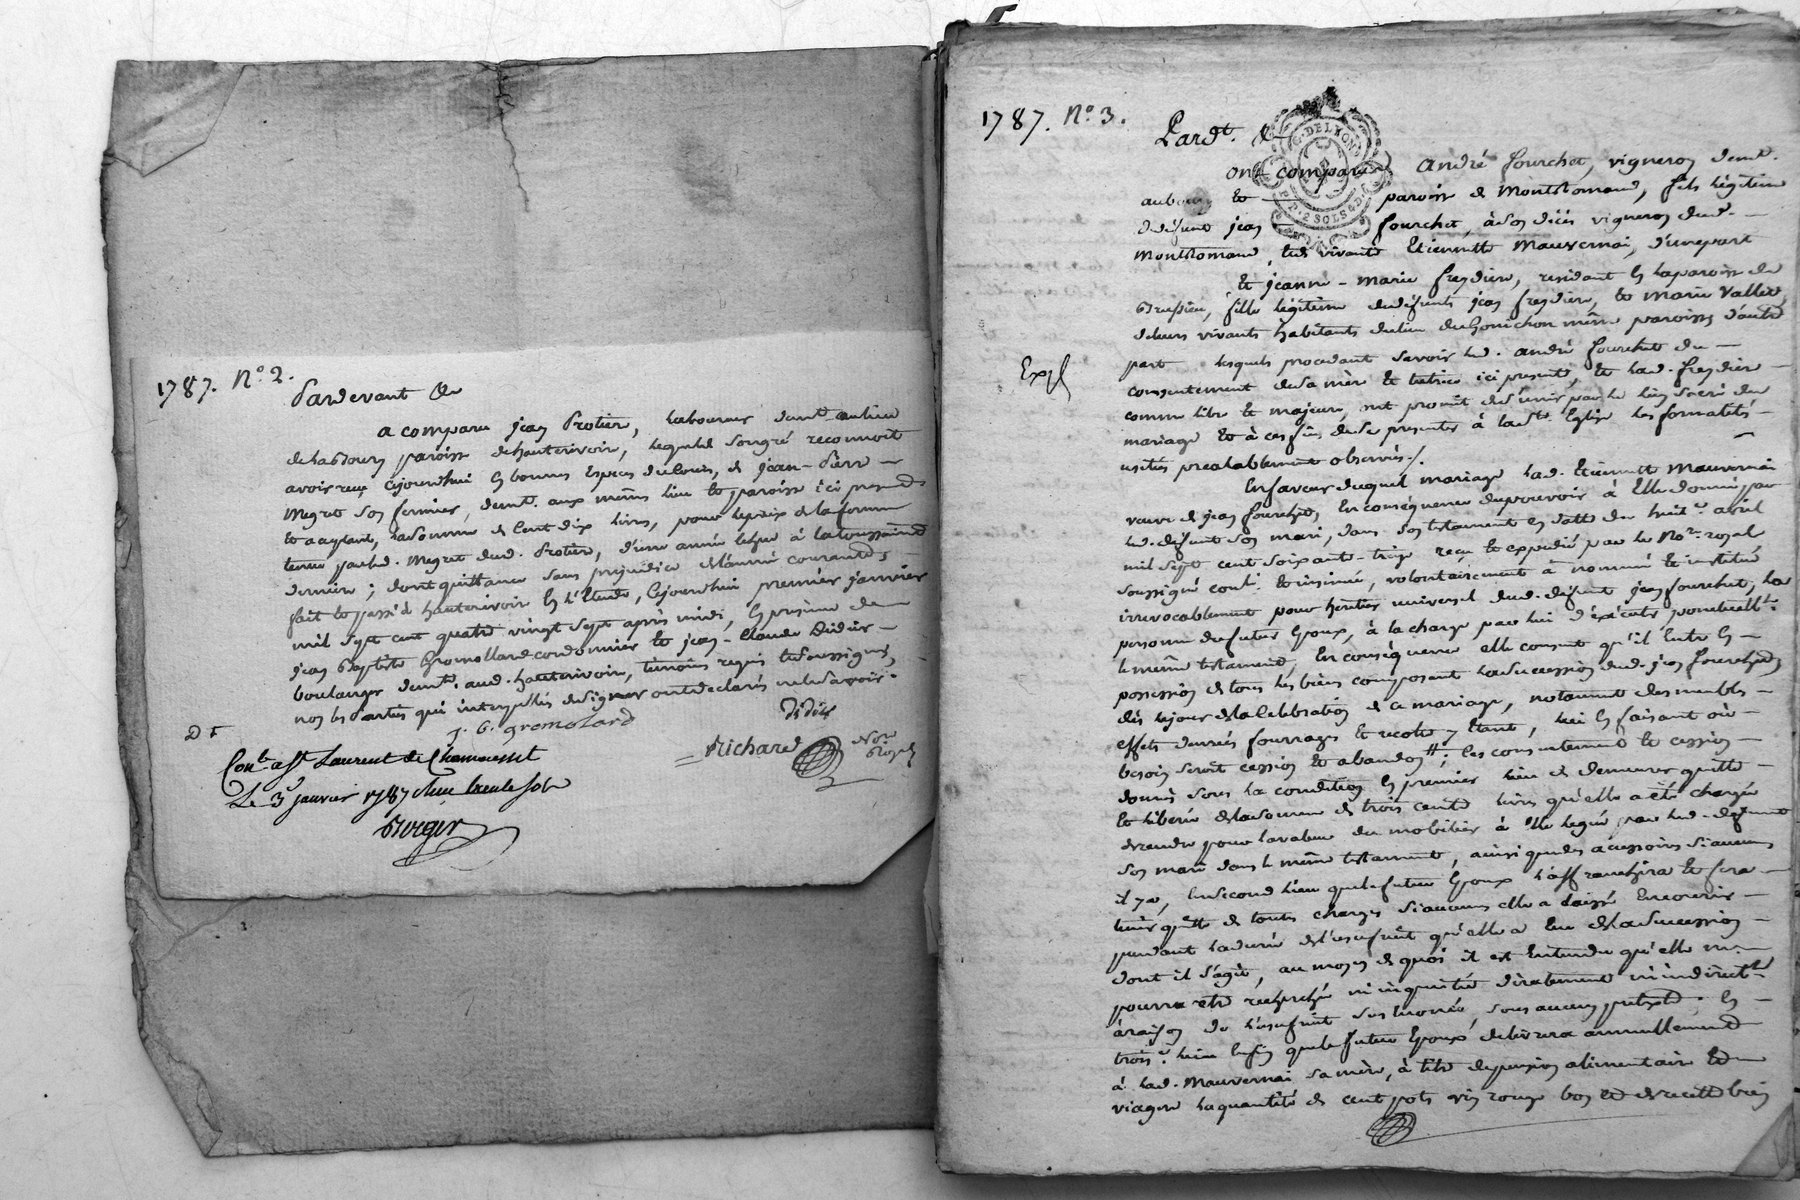 1787. N.o 2.
Pardevant &c
a comparu jean Protier, laboureur demt. au lieu
de paroisse de hauterivoir, lequel de son gré reconnoit
avoir reçu cejourd'hui en bonnes Especes du Cours, de jean-Pierre
Megret son fermier, demt. aux mêmes lieu et paroisse ici present
et acceptant, la somme de Cent dix livres, pour le prix de la ferme
tenue par led. Megret dud. Protier, d'une année echue à la toussaint
derniere; dont quittance sans prejudice de l'année courante
fait et passé à hauterivoir En l'Etude, cejourd'hui premier janvier
mil sept cent quatre vingt sept après midi, En presence de
jean Baptiste Gromollard cordonnier et jean-Claude Didier
boulanger demt. aud. hauterivoir, temoins requis & soussignés,
non les Parties qui interpellés de signer ont declarés ne le savoir.
J. B. gromolard
Didier
Richard
Nore
Royal
Conlé à St Laurent de Chamousset
Le 3 janvier 1787
Berger
1787. N.o 3.
Pardt. &c
G. DE LYON
2 SOLS 4 D
ont comparu André fourchet, vigneron demt.
au bourg et paroisse de Montromand, fils légitime
de defunt jean fourchet, à son décès vigneron dud.
Montromand, et de vivante Etiennette Mauvernai, d'une part
Et jeanne-marie freydiere, residant En la paroisse de
Brussieu, fille légitime de defunts jean freydiere, et marie Vallet,
de leurs vivants habitants du lieu du même paroisse d'autre
part lesquels procedant savoir led. andré fourchet du
Expé
consentement de sa mère et tutrice ici presente, et lad. freydiere
comme libre et majeure, ont promit de s'unir par le lien sacré du
mariage et à ces fins de se presenter à la Ste. Eglise les formalités
usitées prealablement observées./.
En faveur duquel mariage lad. Etiennette Mauvernai
veuve de jean fourchet, En conséquence du pouvoir à Elle donné par
led. defunt son mari, dans son testament en datte du huit avril
mil sept cent soixante-treize reçu et expedié par le Nore. royal
soussigné conlé. et insinué, volontairement a nommé et institué
irrevocablement pour heritier universel dud. defunt jean fourchet, la
personne du futur Epoux, à la charge par lui d'éxécuter ponctuellt.
le même testament, En conséquence elle consent qu'il Entre En
possession de tous les biens composant la succession dud. jean fourchet
dès le jour de la Celebration de ce mariage, notamment des meubles
effets denrées fourrages et recolte y Etant, lui En faisant où
besoin seroit cession et abandon; ces consentement et cession
donnés sous la condition En premier lieu de demeurer quitte
et liberée de la somme de trois cents livres qu'elle a été chargée
de rendre pour la valeur du mobilier à Elle legué par led. defunt
son mari dans le même testament, ainsi que des accessoires si aucuns
il y a, En second lieu que le futur Epoux l'affranchira et fera
tenir quitte de toutes charges si aucunes elle a laissé Encourir
pendant la durée de l'usufruit qu'elle a Eu de la succession
dont il s'agit, au moyen de quoi il est Entendu qu'elle ne
pourra etre recherchée ni inquietée directement ni indirectt.
à raison de l'usufruit susenoncé, sous aucun pretexte; En
trois.e lieu Enfin que le futur Epoux delivrera annuellement
à lad. Mauvernai sa mère, à titre de pension alimentaire et
viagere la quantité de cent pots vin rouge bon et de recette bien